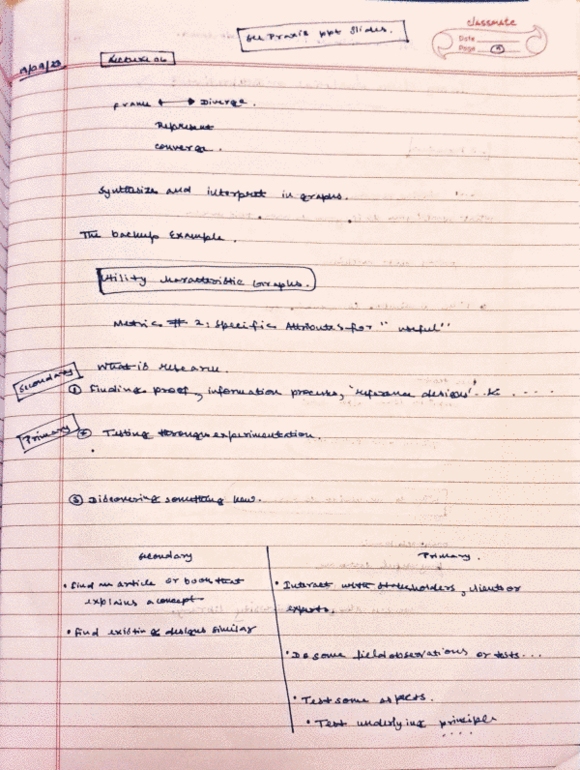 See Praxis ppt slides.
classmate
Date
Page 9
19/09/23
Lecture 06
Frame ⟷ Diverge.
Represent
converge.
Synthesize and interpret in graphs.
The backup Example.
Utility characteristic Graphs.
Metric # 2: Specific Attributes for "useful"
What is research.
Secondary
① Finding proof, information process, 'reference designs'
Primary
② Testing through experimentation.
③ Discovering something new.
Secondary
• Find an article or book that
explains a concept
• Find existing designs similar
Primary.
• Interact with stakeholders, clients or
experts.
• Do some field observations or tests...
• Test some aspects.
• Test underlying principle
....